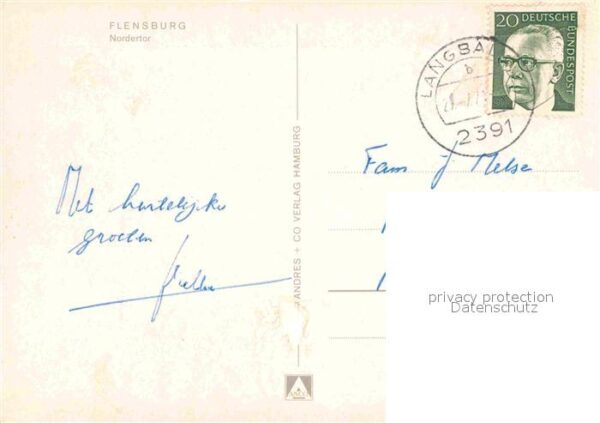 FLENSBURG
Nordertor
Met hartelijke
groeten
ANDRES + CO VERLAG HAMBURG
20 DEUTSCHE
BUNDESPOST
LANGBAL
b
2391
Fam J Melse
privacy protection
Datenschutz